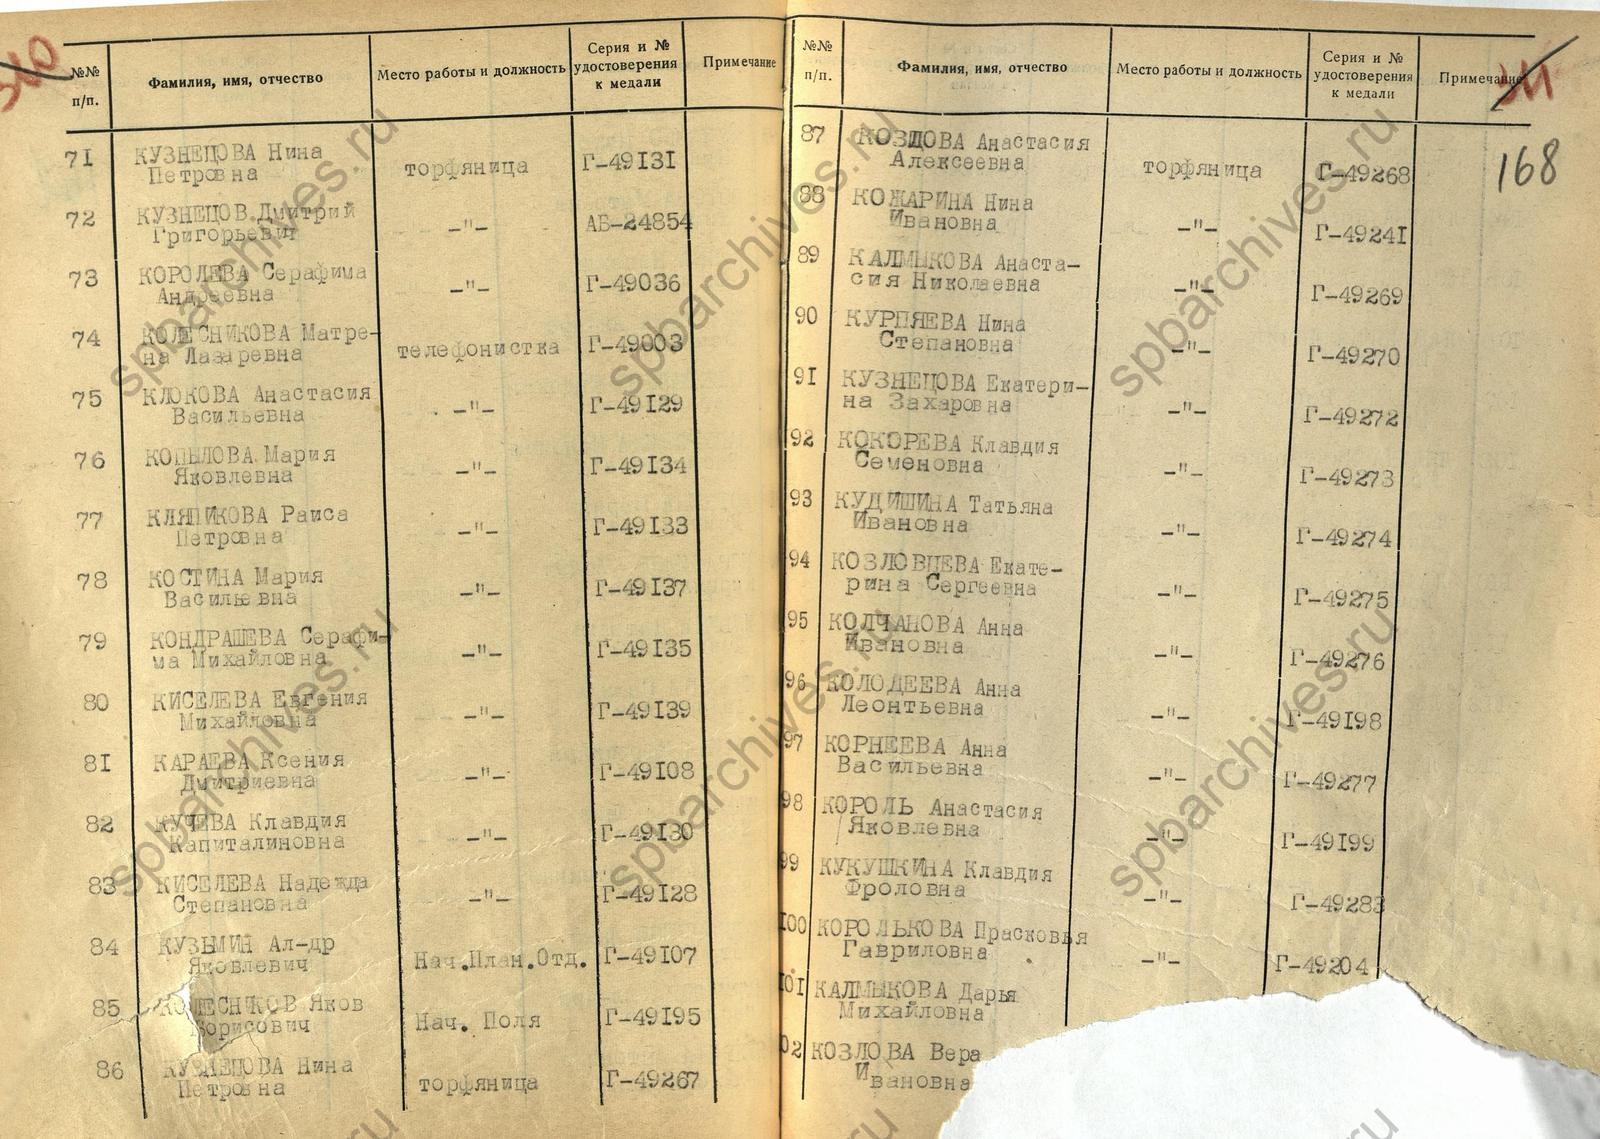 310
№№ п/п. Фамилия, имя, отчество Место работы и должность Серия и № удостоверения к медали Примечание
71 КУЗНЕЦОВА Нина торфяница Г-49131
Петровна
72 КУЗНЕЦОВ Дмитрий –"– АБ-24854
Григорьевич
73 КОРОЛЕВА Серафима –"– Г-49036
Андреевна
74 КОЛЕСНИКОВА Матре- телефонистка Г-49003
на Лазаревна
75 КЛОКОВА Анастасия –"– Г-49129
Васильевна
76 КОПЫЛОВА Мария –"– Г-49134
Яковлевна
77 КЛЯПИКОВА Раиса –"– Г-49133
Петровна
78 КОСТИНА Мария –"– Г-49137
Васильевна
79 КОНДРАШЕВА Серафи- –"– Г-49135
ма Михайловна
80 КИСЕЛЕВА Евгения –"– Г-49139
Михайловна
81 КАРАЕВА Ксения –"– Г-49108
Дмитриевна
82 КУЧЕВА Клавдия –"– Г-49130
Капиталиновна
83 КИСЕЛЕВА Надежда –"– Г-49128
Степановна
84 КУЗЬМИН Ал-др Нач.План.Отд. Г-49107
Яковлевич
85 КОЛЕСНИКОВ Яков Нач. Поля Г-49195
Борисович
86 КУЗНЕЦОВА Нина торфяница Г-49267
Петровна
311
168
№№ п/п. Фамилия, имя, отчество Место работы и должность Серия и № удостоверения к медали Примечание
87 Анастасия торфяница Г-49268
Алексеевна
88 КОЖАРИНА Нина –"– Г-49241
Ивановна
89 КАЛМЫКОВА Анаста- –"– Г-49269
сия Николаевна
90 КУРПЯЕВА Нина –"– Г-49270
Степановна
91 КУЗНЕЦОВА Екатери- –"– Г-49272
на Захаровна
92 КОКОРЕВА Клавдия –"– Г-49273
Семеновна
93 КУДИШИНА Татьяна –"– Г-49274
Ивановна
94 КОЗЛОВЦЕВА Екате- –"– Г-49275
рина Сергеевна
95 КОЛЧАНОВА Анна –"– Г-49276
Ивановна
96 КОЛОДЕЕВА Анна –"– Г-49198
Леонтьевна
97 КОРНЕЕВА Анна –"– Г-49277
Васильевна
98 КОРОЛЬ Анастасия –"– Г-49199
Яковлевна
99 КУКУШКИНА Клавдия –"– Г-49283
Фроловна
100 КОРОЛЬКОВА Прасковья –"– Г-49204
Гавриловна
101 КАЛМЫКОВА Дарья
Михайловна
02 КОЗЛОВА Вера
Ивановна
spbarchives.ru
spbarchives.ru
spbarchives.ru
spbarchives.ru
spbarchives.ru
spbarchives.ru